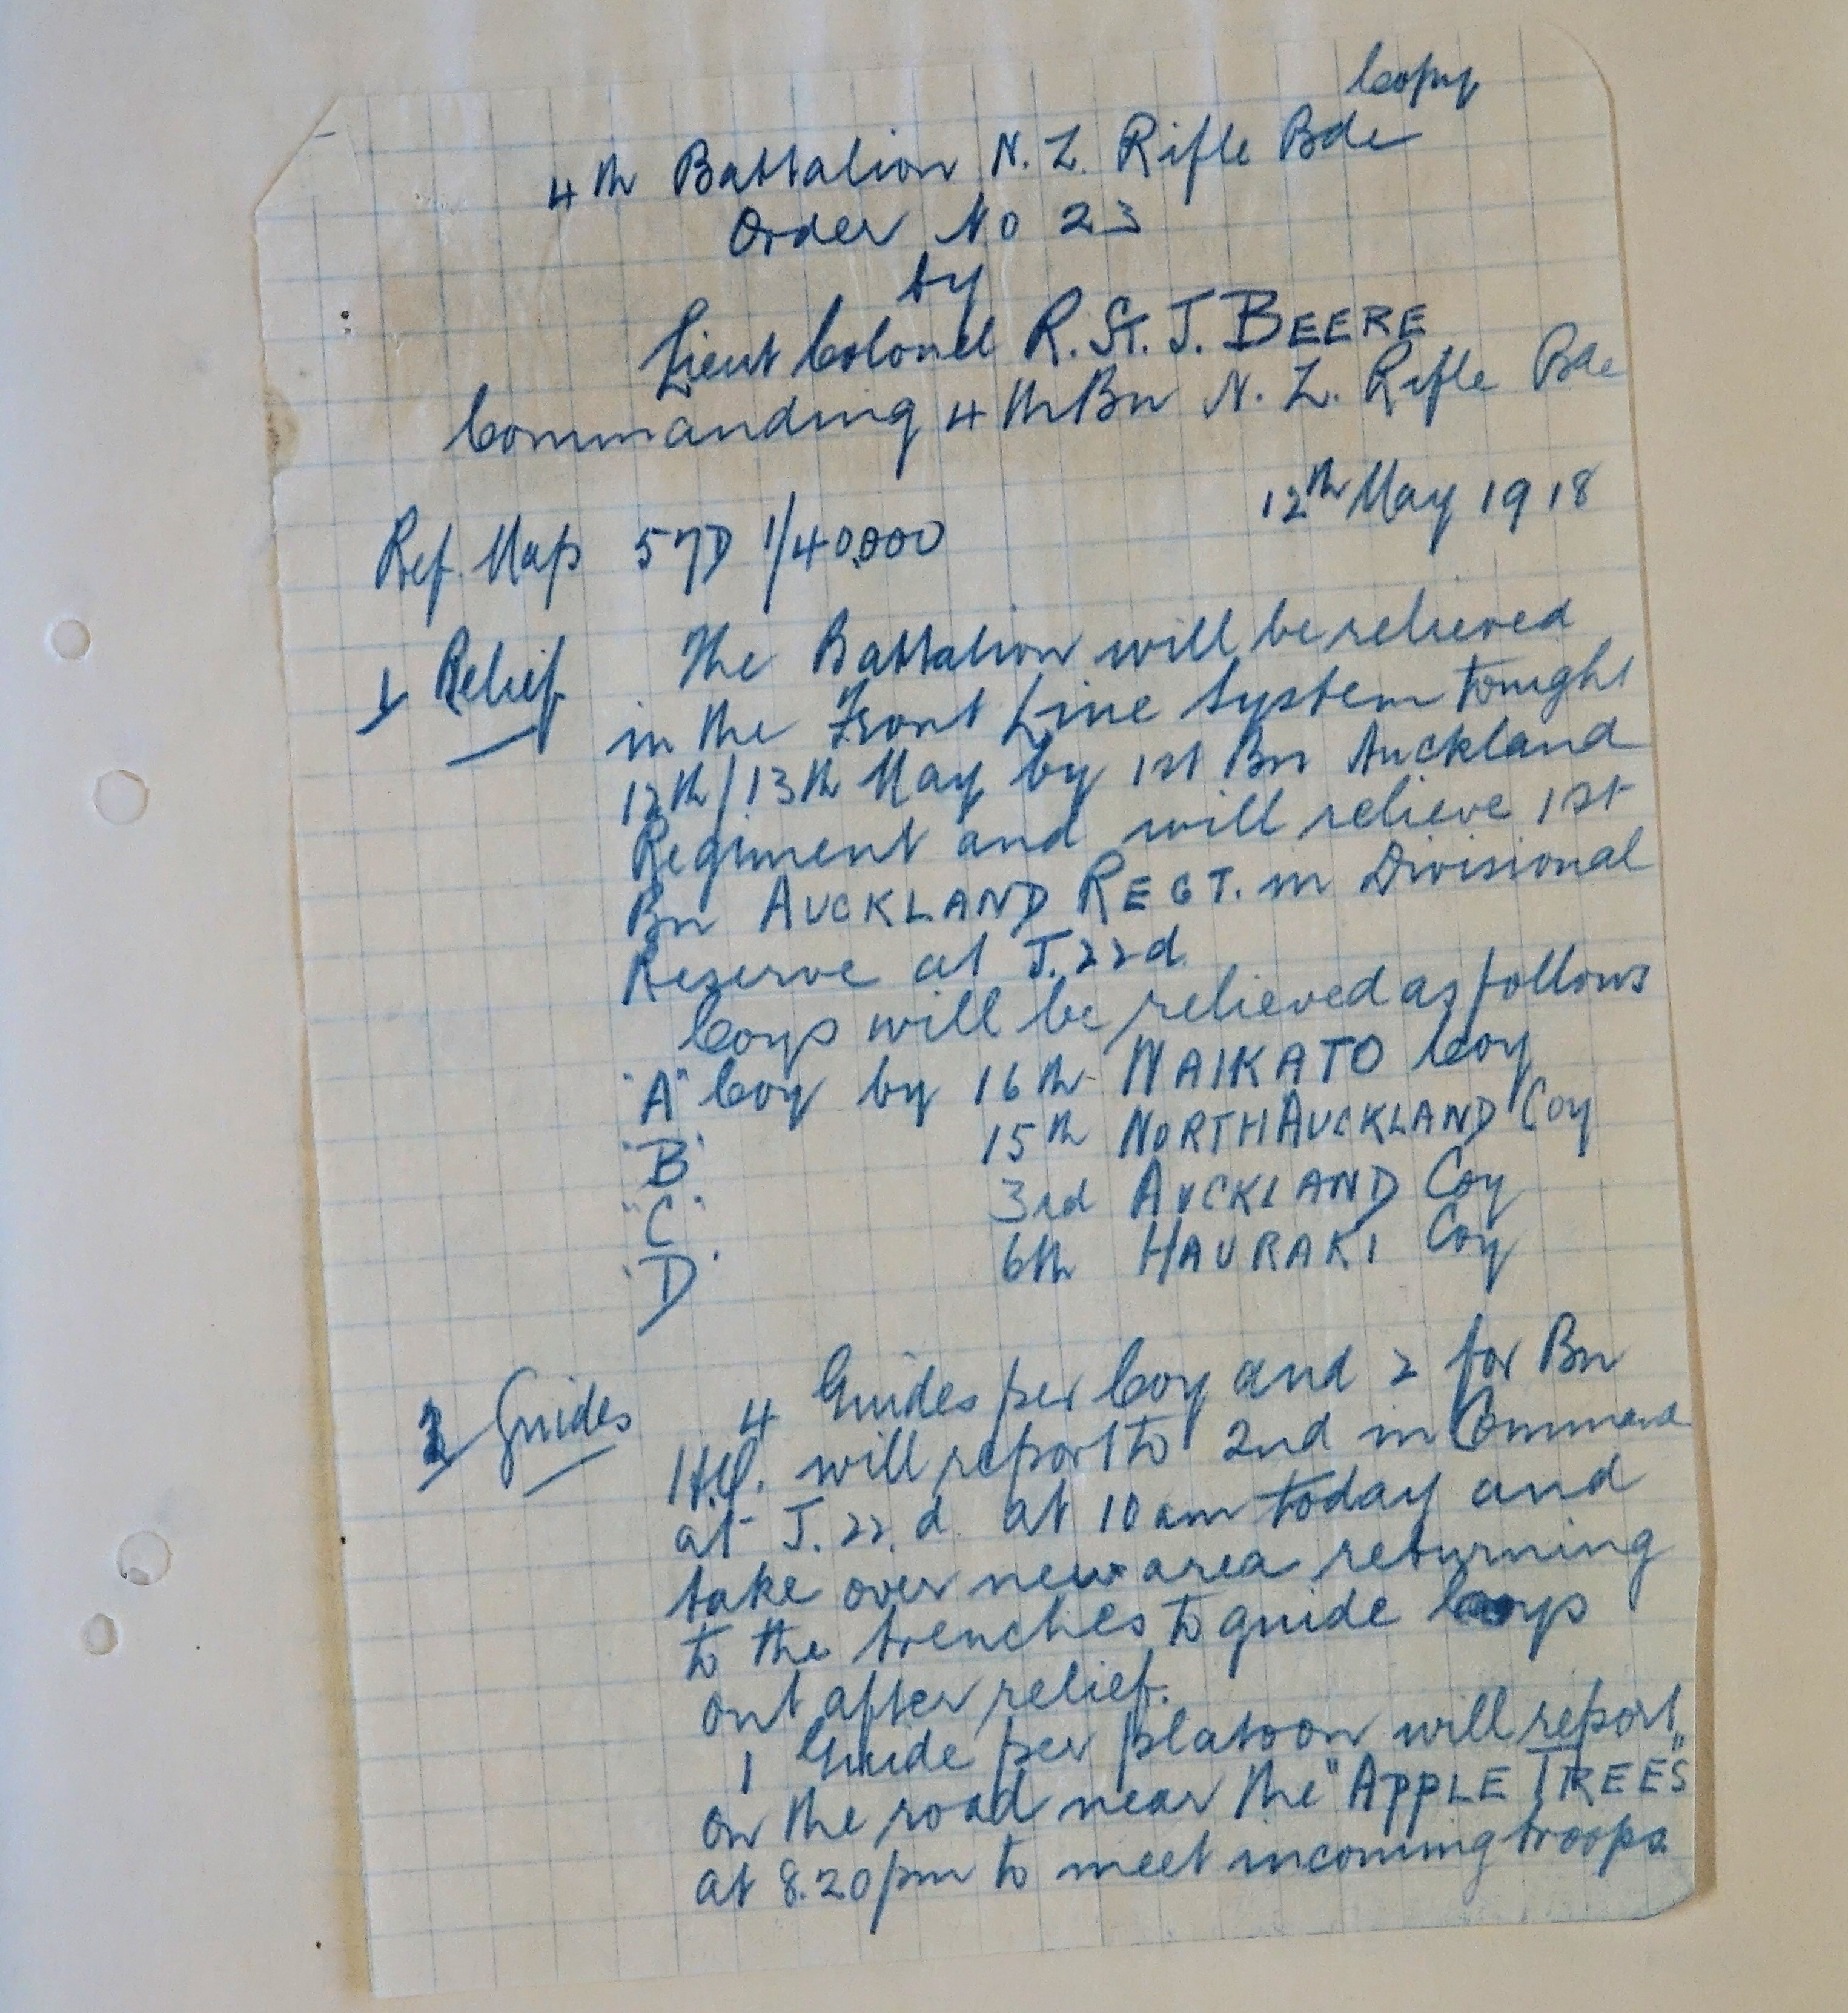 Copy
4th Battalion N. Z. Rifle Bde
Order No 23
by
Lieut Colonel R. St. J. BEERE
Commanding 4th Bn N. Z. Rifle Bde
12th May 1918
Ref. Map 57D 1/40,000
1 Relief The Battalion will be relieved
in the Front Line System tonight
12th/13th May by 1st Bn Auckland
Regiment and will relieve 1st
Bn AUCKLAND REGT. in Divisional
Reserve at J.22d.
Coys will be relieved as follows
"A" Coy by 16th WAIKATO Coy
"B" 15th NORTH AUCKLAND Coy
"C" 3rd AUCKLAND Coy
"D" 6th HAURAKI Coy
2 Guides 4 Guides per Coy and 2 for Bn
H.Q. will report to 2nd in Command
at J.22.d. at 10 am today and
take over new area returning
to the trenches to guide Coys
out after relief.
1 Guide per platoon will report
on the road near the "APPLE TREES"
at 8.20 pm to meet incoming troops.